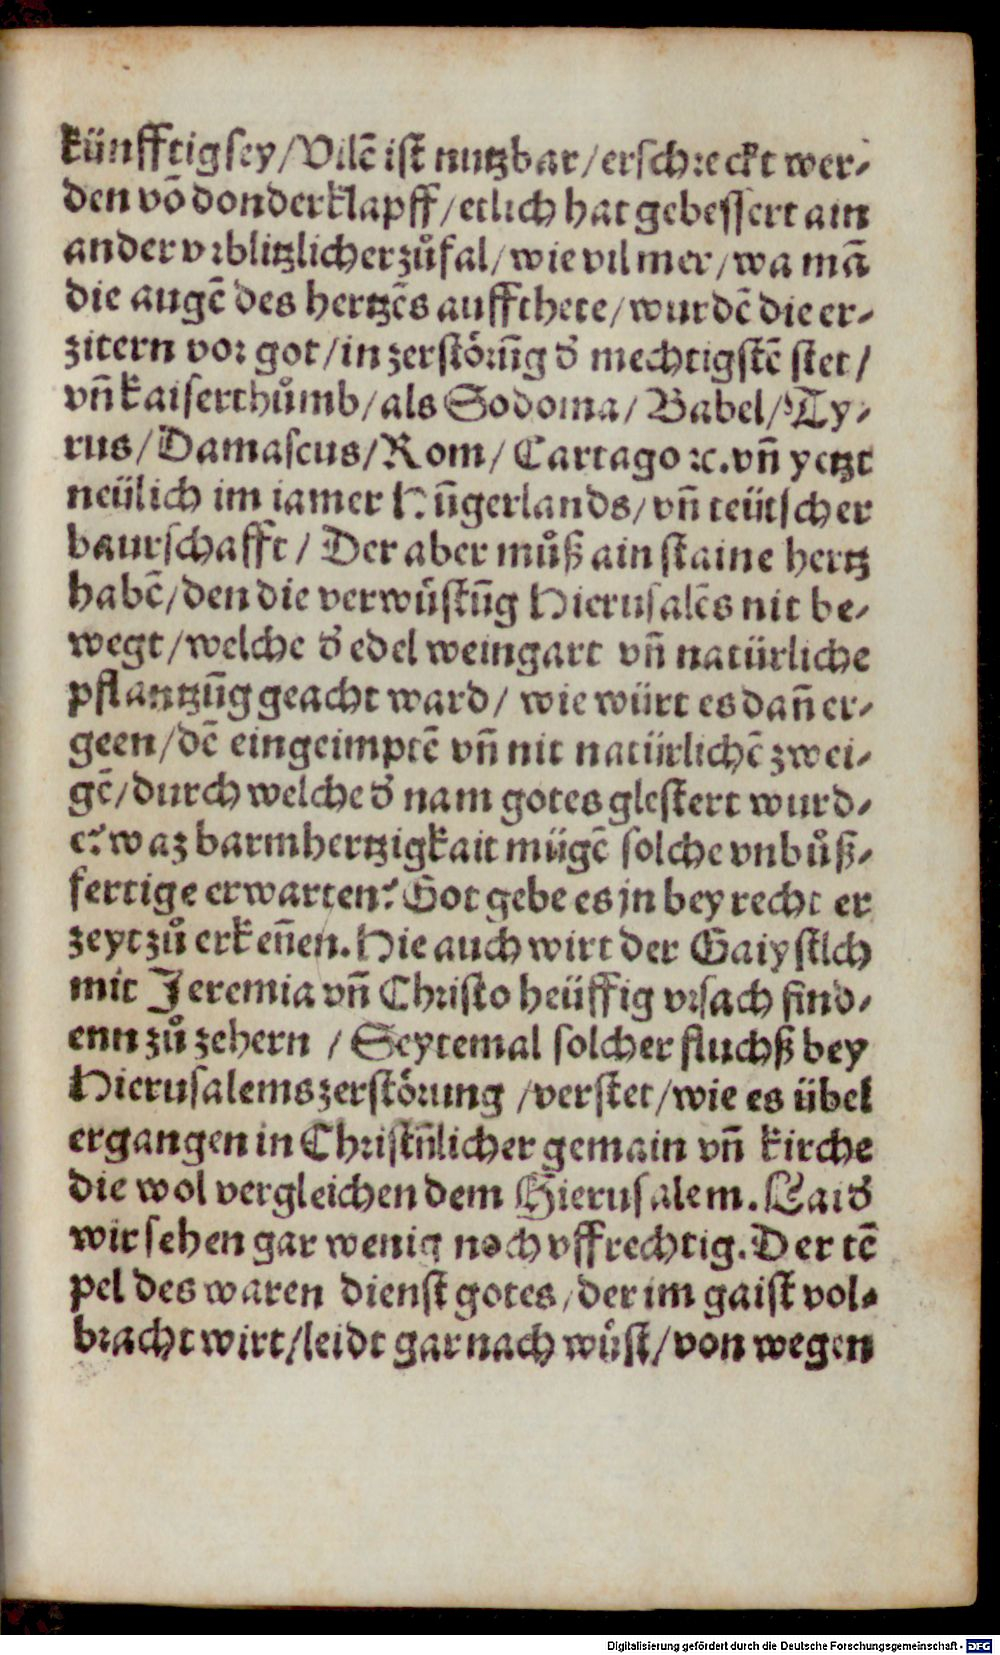 künfftig sey/Vilē ist nutzbar/erschreckt wer-
den vō donderklapff/etlich hat gebessert ain
ander vrblitzlicher zůfal/wie vil mer/wa mā
die augē des hertzēs auffthete/wurdē die er-
zitern vor got/in zerstörūg d' mechtigstē stet/
vn̄ kaiserthůmb/als Sodoma/Babel/Ty-
rus/Damascus/Rom/Cartago ⁊c.vn̄ yetzt
neülich im iamer Hūgerlands/vn̄ teütscher
baurschafft/Der aber můß ain staine hertz
habē/den die verwüstūg Hierusalēs nit be-
wegt/welche d' edel weingart vn̄ natürliche
pflantzūg geacht ward/wie würt es dan̄ er-
geen/dē eingeimptē vn̄ nit natürlichē zwei-
gē/durch welche d' nam gotes glestert wurd-
e?waz barmhertzigkait mügē solche vnbůß-
fertige erwarten?Got gebe es jn bey recht er
zeyt zů erken̄en.Hie auch wirt der Gaiystlch
mit Jeremia vn̄ Christo heüffig vrsach find-
enn zů zehern /Seytemal solcher fluchß bey
Hierusalems zerstörung /verstet/wie es übel
ergangen in Christn̄licher gemain vn̄ kirche
die wol vergleichen dem Hierusalem.Laid'
wir sehen gar wenig noch vffrechtig.Der tē
pel des waren dienst gotes/der im gaist vol-
bracht wirt/leidt gar nach wüst/von wegen
Digitalisierung gefördert durch die Deutsche Forschungsgemeinschaft - DFG